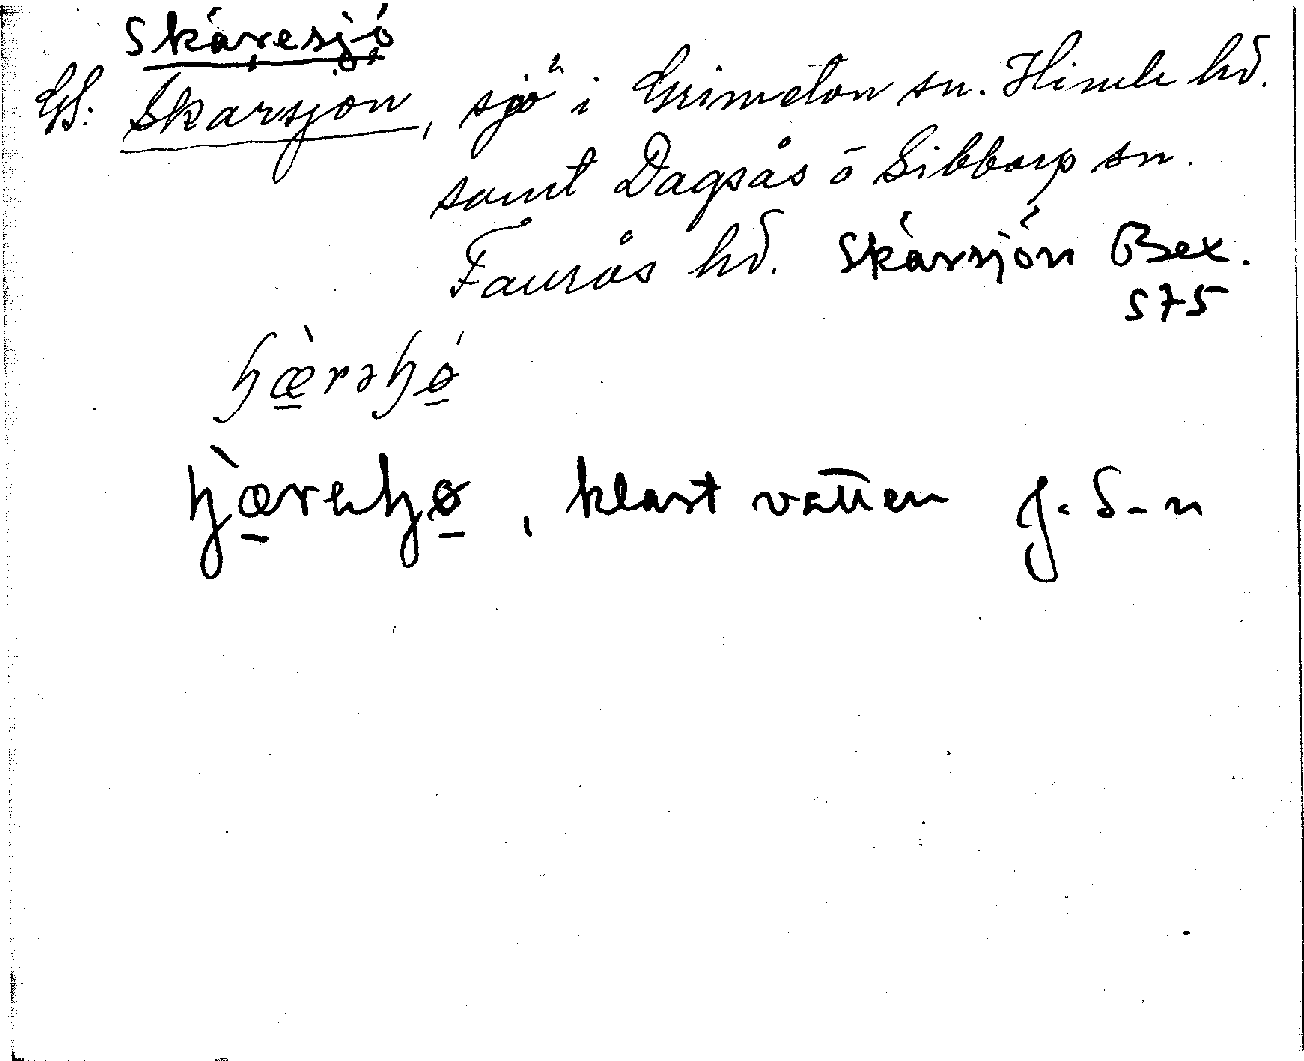 Skäresjö
GS: Skärsjön, sjö i Grimeton sn. Himle hd.
samt Dagsås o Sibbarp sn.
Faurås hd. Skärsjön Bex.
575
ɧæ̀rəɧǿ
ɧæ̀reɧø, klart vatten J. S-n